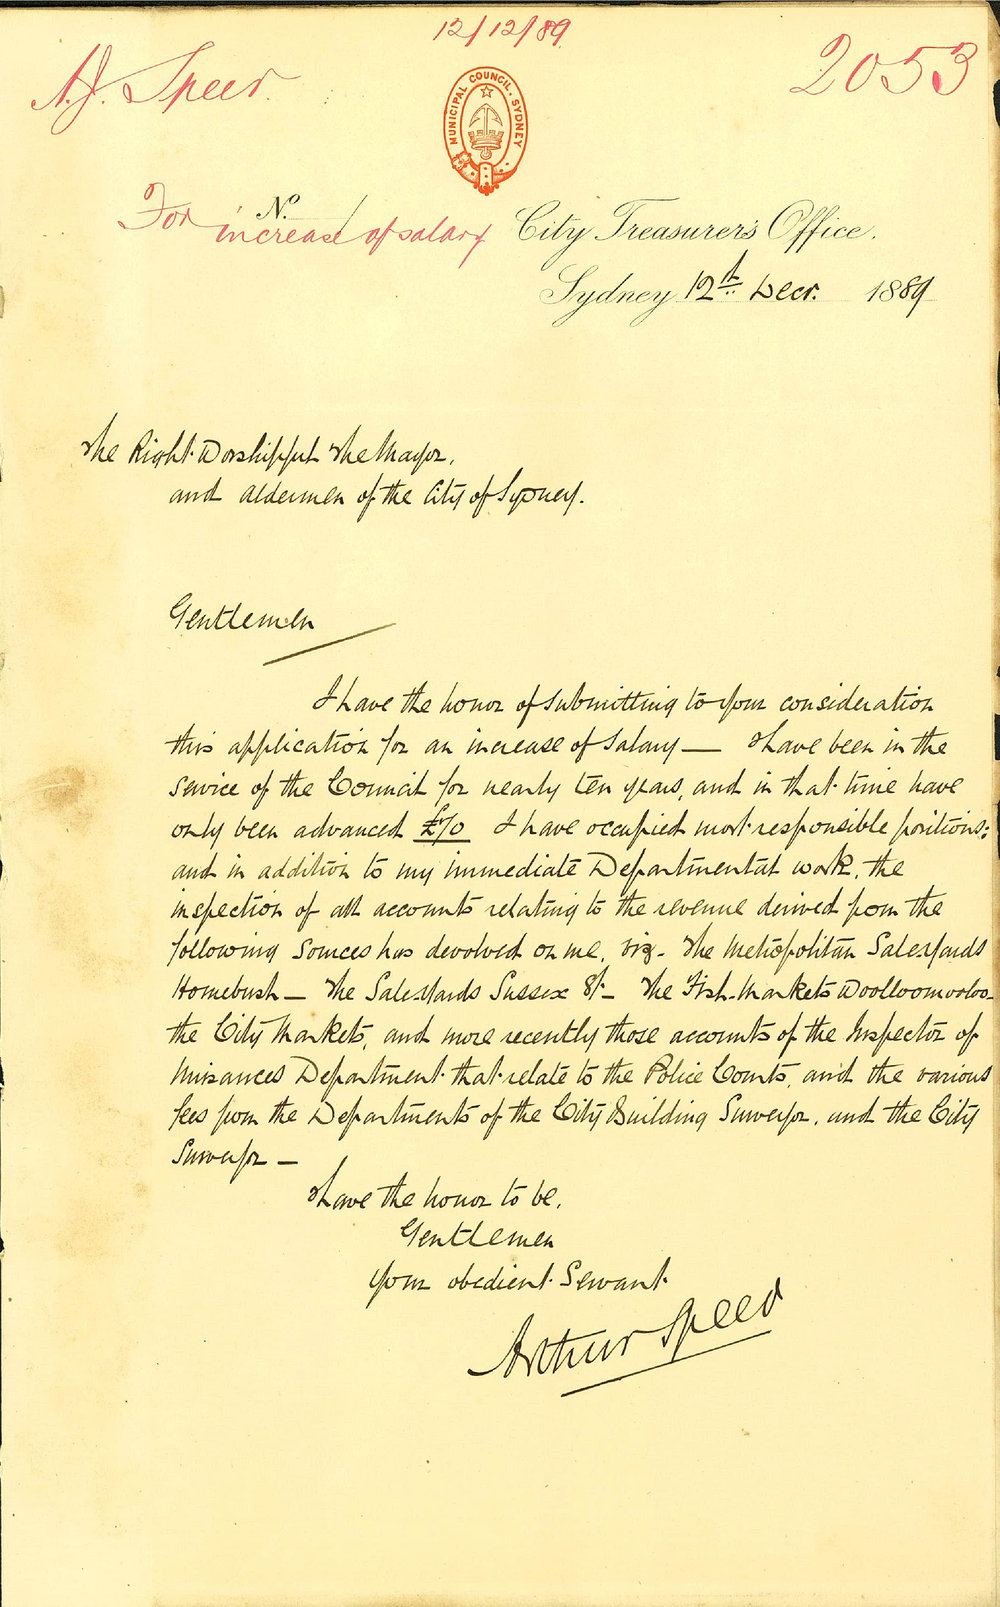 12/12/89
A.J. Speed.
2053
MUNICIPAL COUNCIL. SYDNEY
No.
For increase of salary
City Treasurer's Office.
Sydney 12th Decr. 1889
The Right Worshipful The Mayor,
and Aldermen of the City of Sydney.
Gentlemen
I have the honor of submitting to your consideration
this application for an increase of salary — I have been in the
service of the Council for nearly ten years, and in that time have
only been advanced I have occupied most responsible positions;
and in addition to my immediate Departmental work, the
inspection of all accounts relating to the revenue derived from the
following sources has devolved on me, viz - The Metropolitan Saleyards
Homebush — The Saleyards Sussex St — The Fish-Markets Woolloomooloo —
the City Markets, and more recently those accounts of the Inspector of
Nuisances Department that relate to the Police Courts, and the various
fees from the Departments of the City Building Surveyor, and the City
Surveyor —
I have the honor to be,
Gentlemen
Your obedient Servant
Arthur Speed